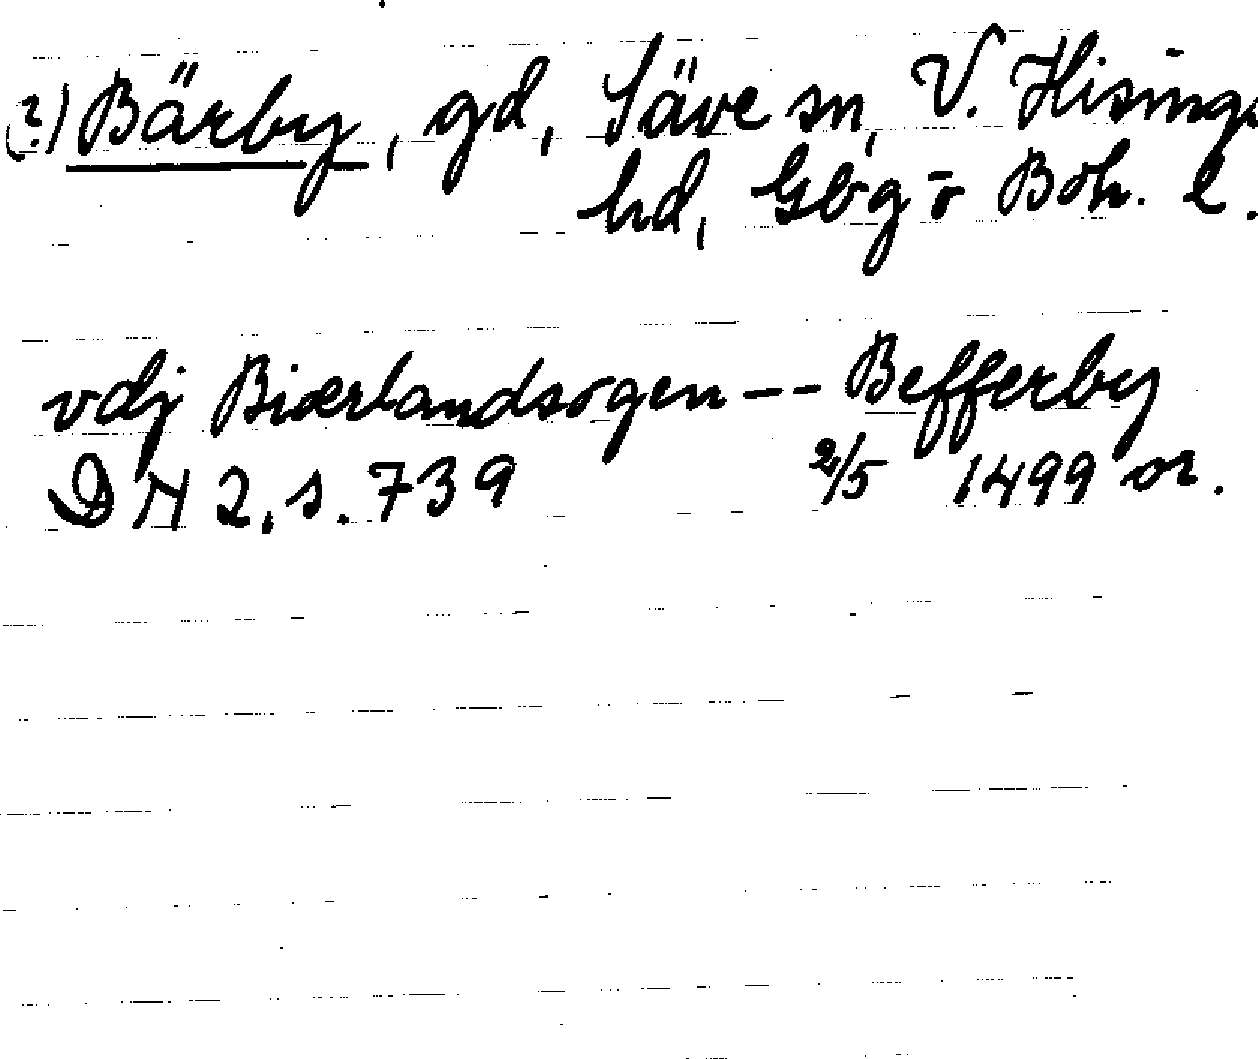 (?) Bärby, gd, Säve sn, V. Hisings
hd, Gbg o Boh. l.
vdj Biærlandsogen -- Befferby
DN 2, s. 739 2/5 1499 or.